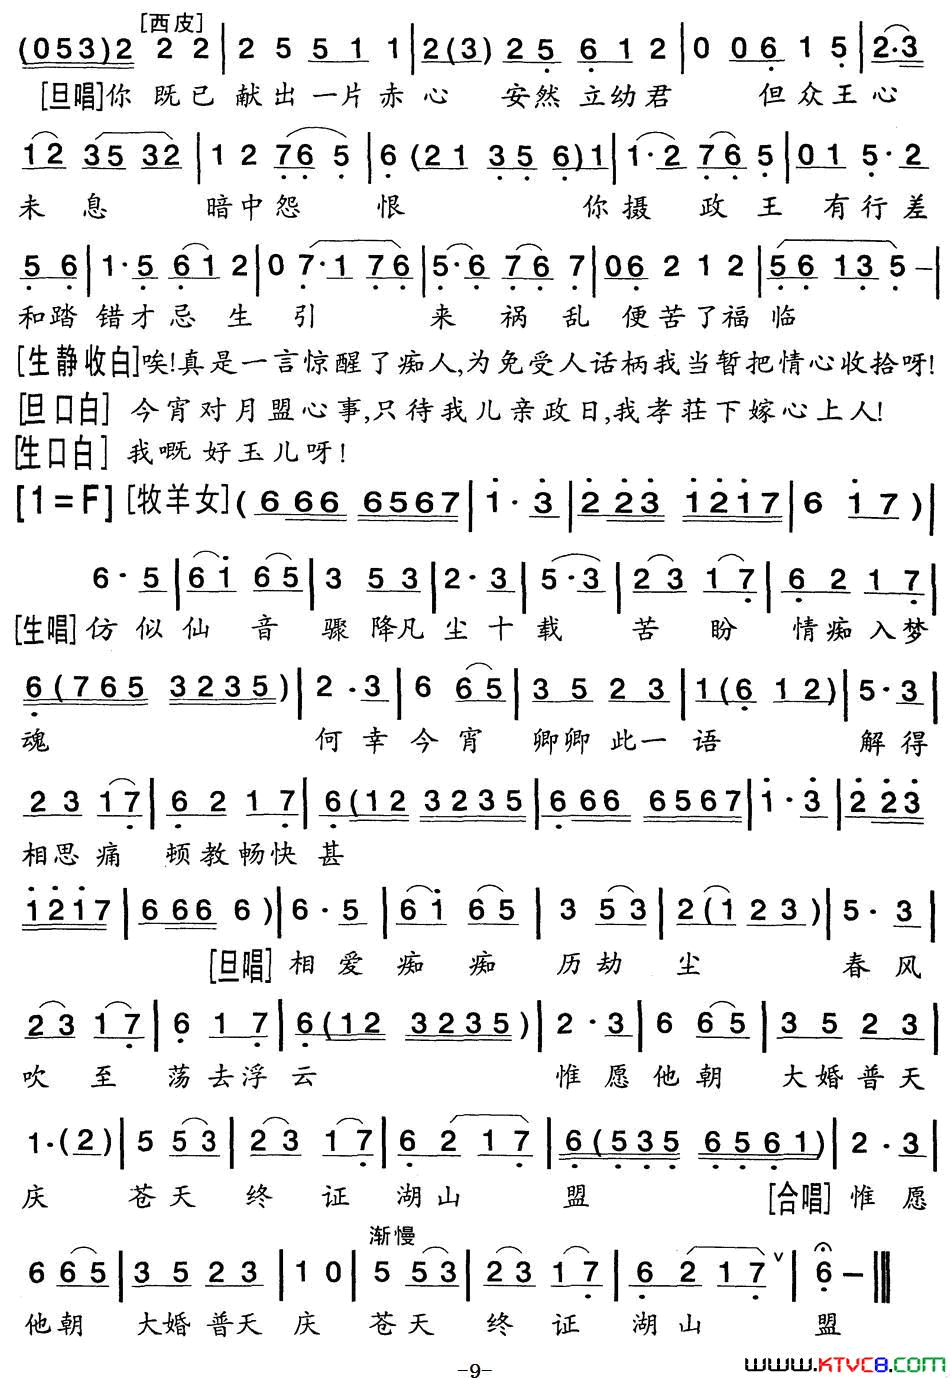 [西皮]
(053)2 2 2 | 2 5 5 1 1 | 2(3) 2 5 6 1 2 | 0 0 6 1 5 | 2·3
[旦唱]你 既已 献出一片赤心 安然立幼君 但众王心
1 2 35 32 | 1 2 76 5 | 6 (21 35 6)1 | 1·2 76 5 | 01 5·2
未 息 暗中怨 恨 你摄 政王 有行差
5 6 | 1·5 61 2 | 0 7·1 76 | 5·6 76 7 | 06 2 1 2 | 56 13 5 – |
和踏 错才忌生 引 来 祸乱 便苦了福临
[生静收白]唉!真是一言惊醒了痴人,为免受人话柄我当暂把情心收拾呀!
[旦口白] 今宵对月盟心事,只待我儿亲政日,我孝荘下嫁心上人!
[生口白] 我嘅好玉儿呀!
[1=F] [牧羊女] (6 66 6567 | 1·3 | 2 23 1217 | 6 17) |
6·5 | 61 65 | 3 53 | 2·3 | 5·3 | 23 17 | 62 17 |
[生唱]仿似仙 音 骤降凡尘十载 苦 盼 情痴入梦
6(765 3235) | 2·3 | 6 65 | 35 23 | 1(6 12) | 5·3 |
魂 何幸今宵 卿卿此一语 解得
23 17 | 62 17 | 6(12 3235 | 666 6567 | 1·3 | 2 23
相思痛 顿教畅快甚
1217 | 6 66 6) | 6·5 | 61 65 | 3 53 | 2(1 23) | 5·3 |
[旦唱] 相爱痴 痴 历劫尘 春风
23 17 | 6 17 | 6(12 3235) | 2·3 | 6 65 | 35 23 |
吹 至 荡去浮云 惟愿他朝 大婚普天
1·(2) | 5 53 | 23 17 | 62 17 | 6(535 6561) | 2·3 |
庆 苍天 终 证 湖山 盟 [合唱] 惟愿
渐慢
6 65 | 35 23 | 1 0 | 5 53 | 23 17 | 62 17 ∨ | 6 – ‖
他朝 大婚普天 庆 苍天 终 证 湖山 盟
-9-
www.KTVC8.com